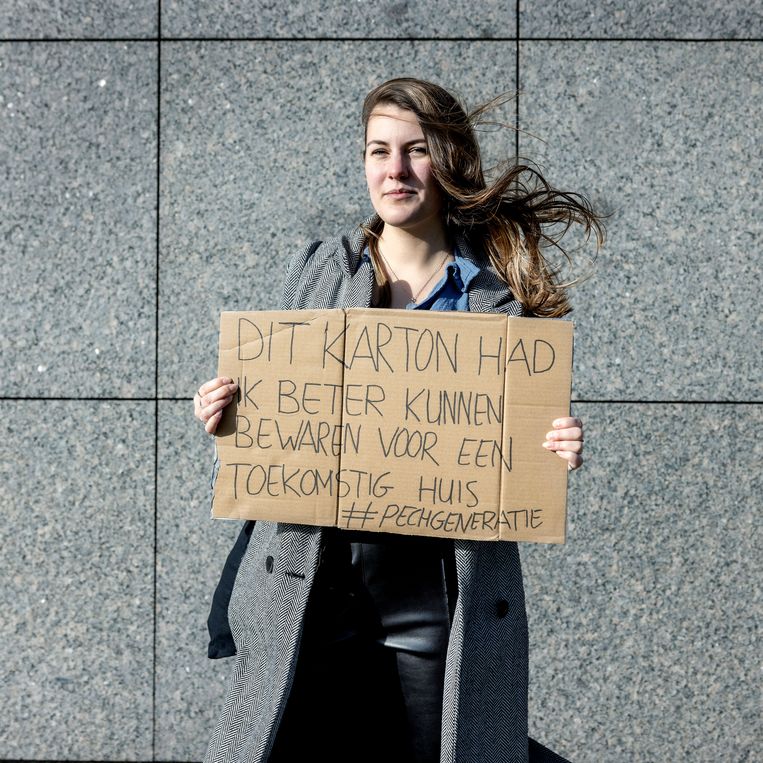 DIT KARTON HAD
IK BETER KUNNEN
BEWAREN VOOR EEN
TOEKOMSTIG HUIS
#PECHGENERATIE